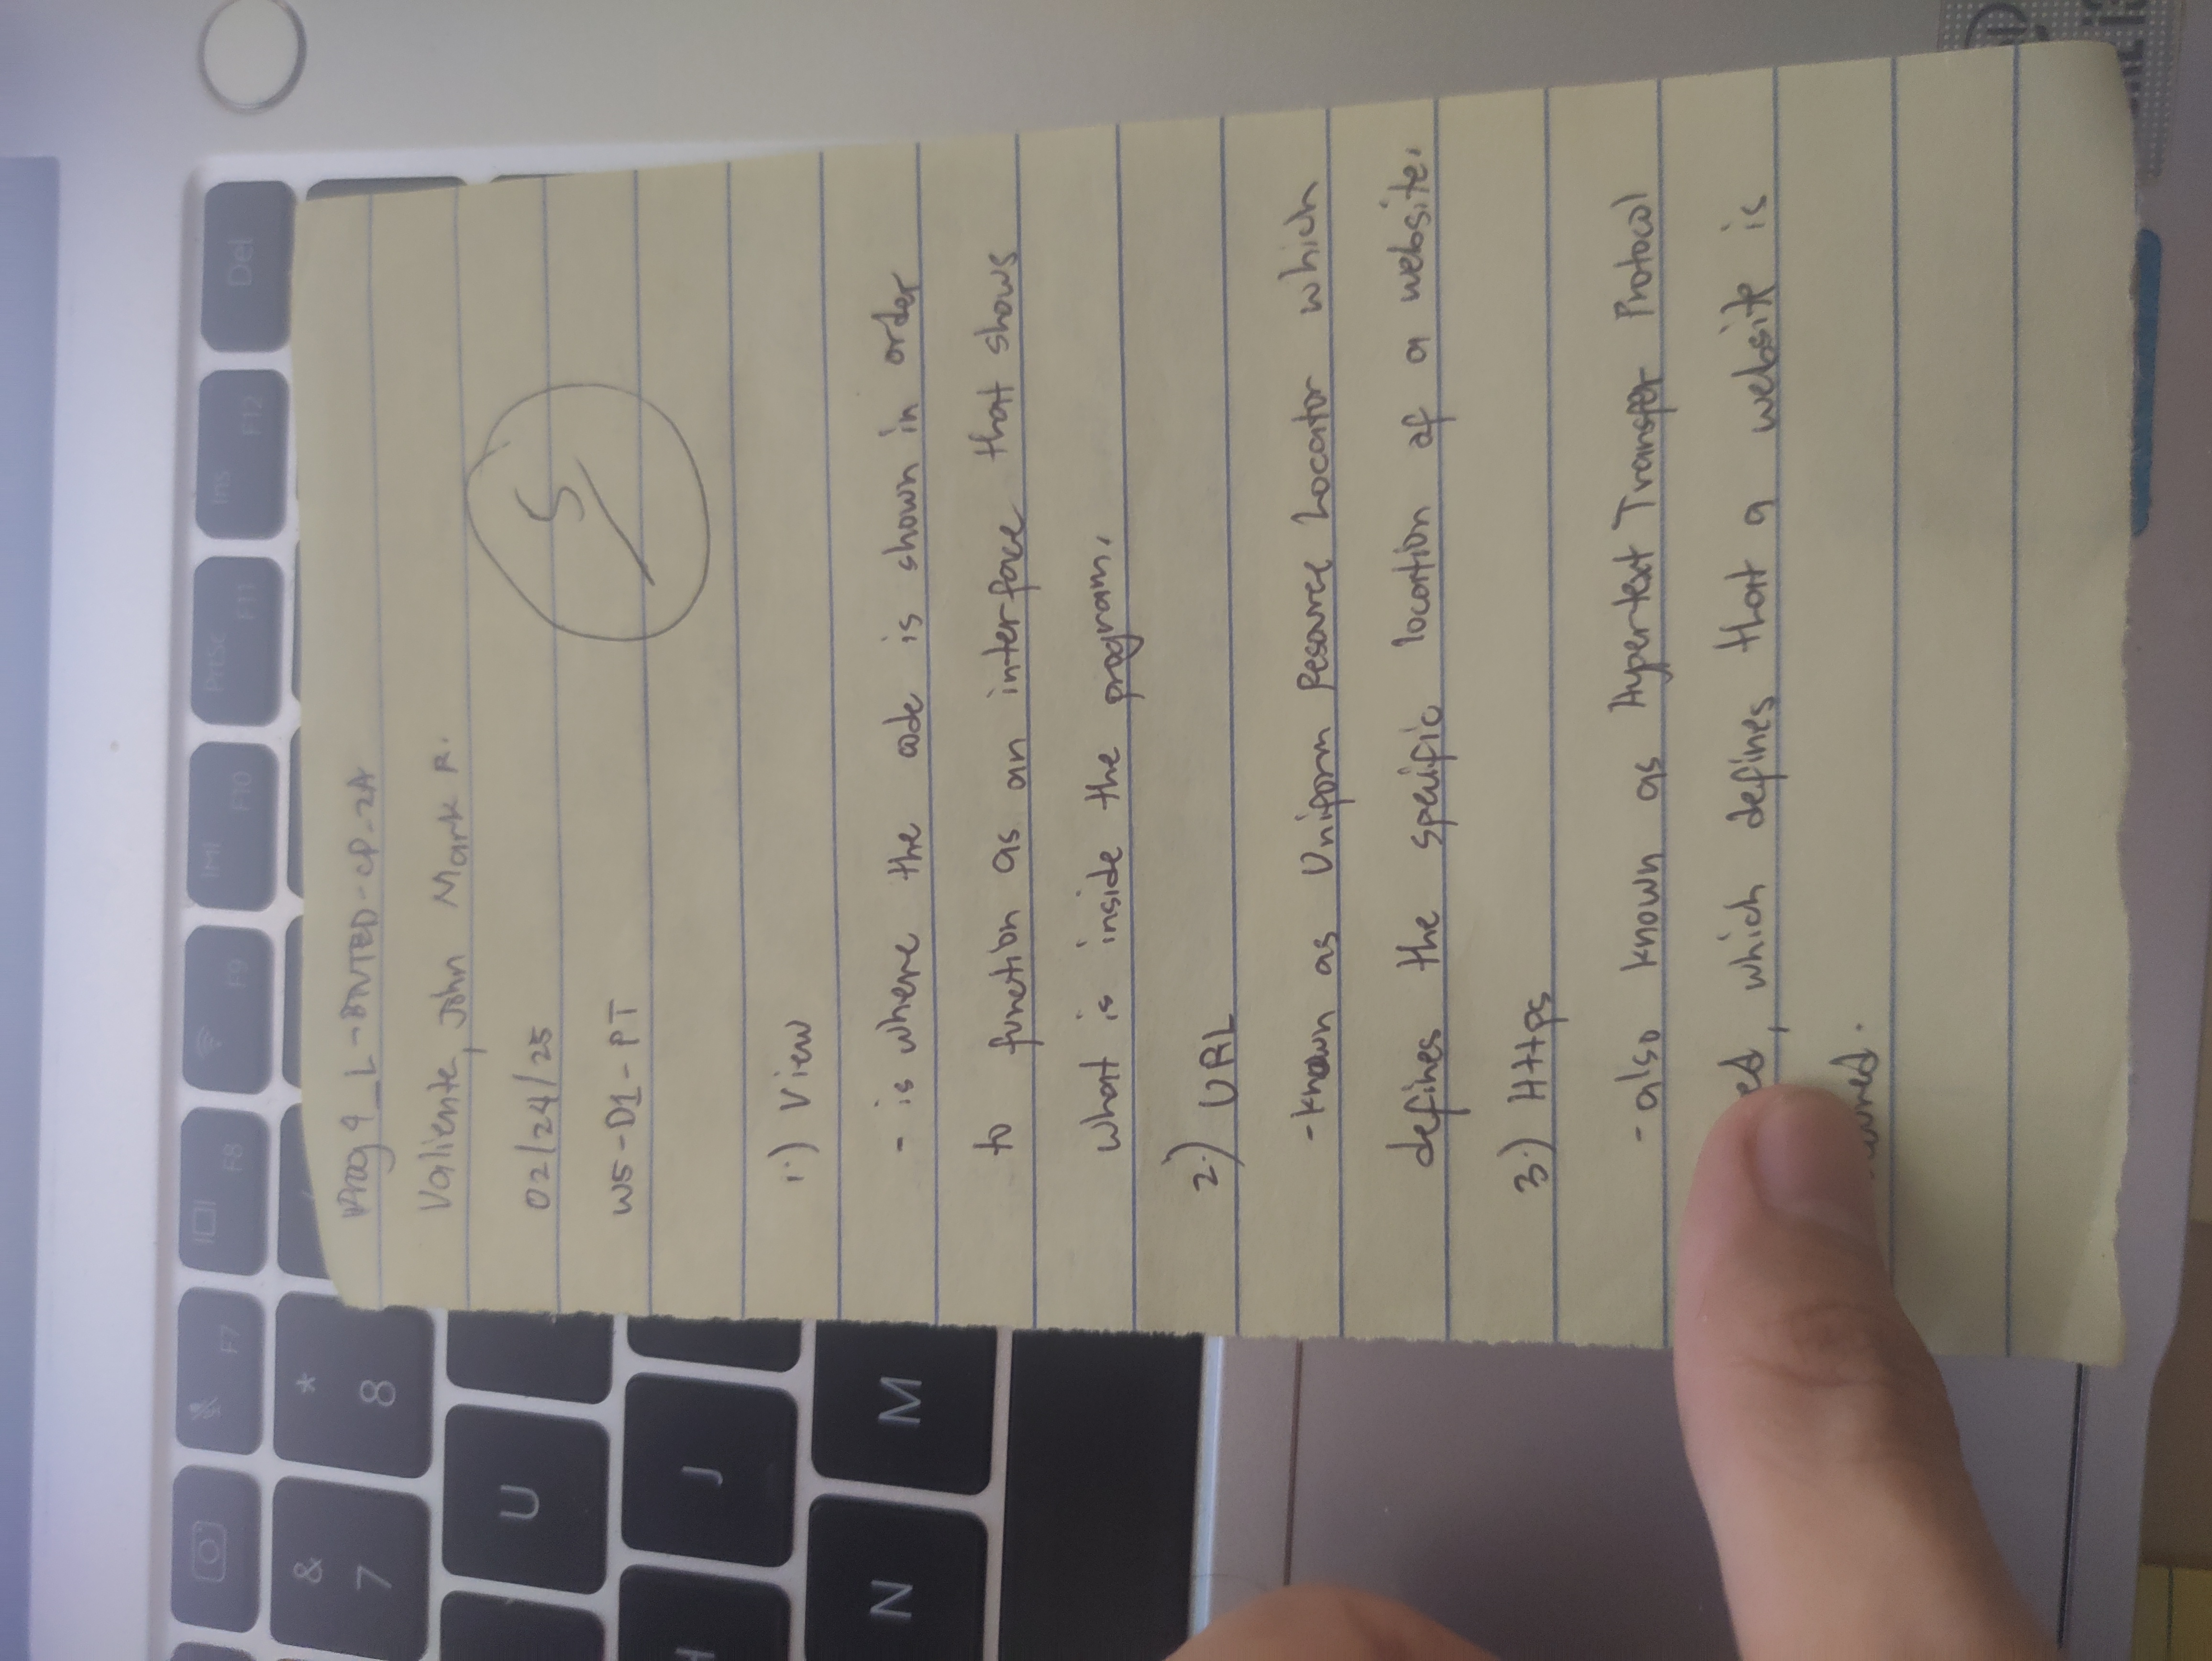 F7
F8
F9
F10
PrtSc
F11
Ins
F12
Del
&
7
*
8
U
J
N
M
Prog 4_L-BTVTED-CP-2A
Valiente, John Mark R.
02/24/25
5
W5-D1-PT
1.) View
- is where the code is shown in order
to function as an interface that shows
what is inside the program.
2.) URL
-known as Uniform Resource Locator which
defines the specific location of a website.
3.) Https
-also known as Hypertext Transfer Protocol
ed, which defines that a website is